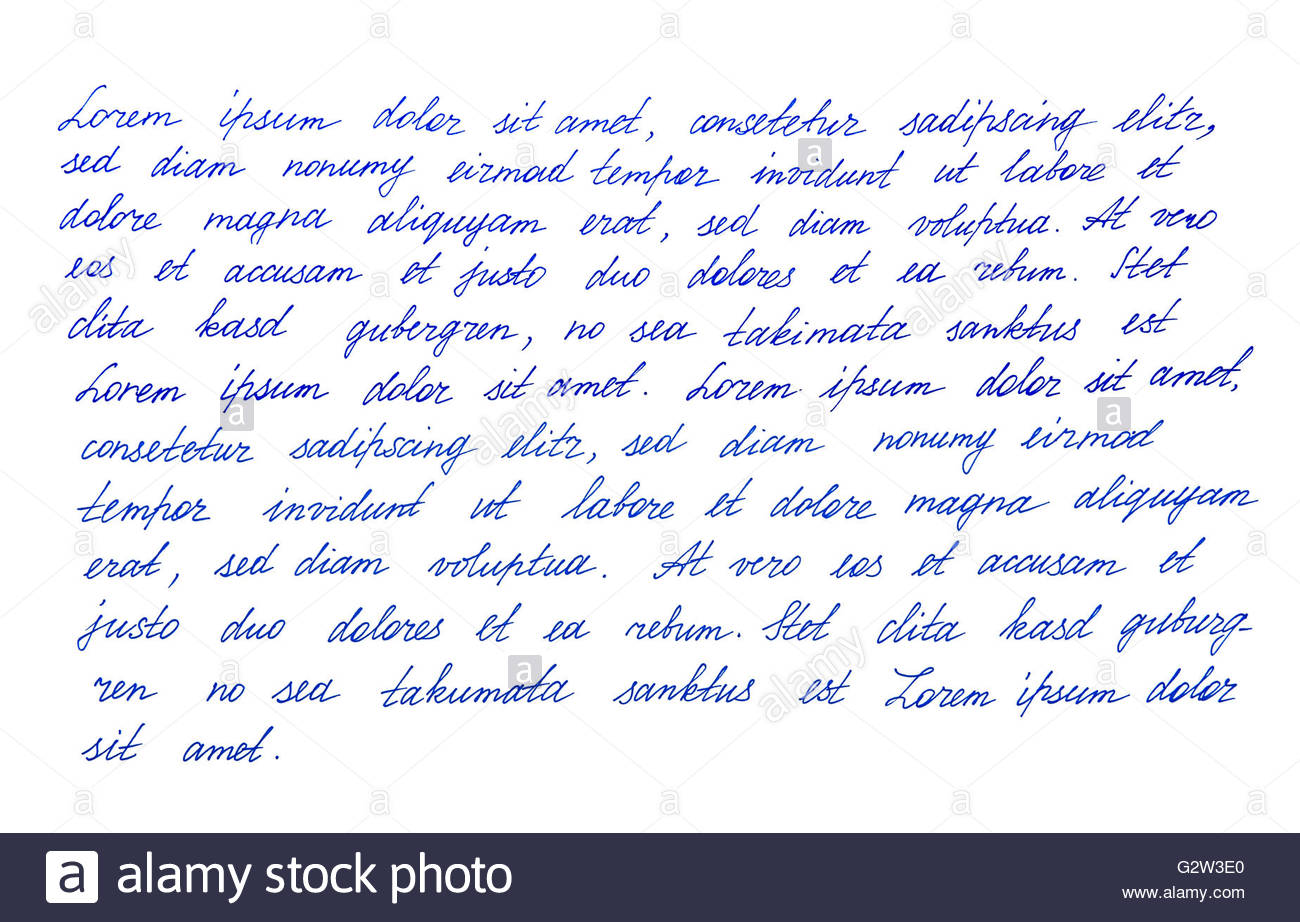 Lorem ipsum dolor sit amet, consetetur sadipscing elitr,
sed diam nonumy eirmod tempor invidunt ut labore et
dolore magna aliquyam erat, sed diam voluptua. At vero
eos et accusam et justo duo dolores et ea rebum. Stet
clita kasd gubergren, no sea takimata sanktus est
Lorem ipsum dolor sit amet. Lorem ipsum dolor sit amet,
consetetur sadipscing elitr, sed diam nonumy eirmod
tempor invidunt ut labore et dolore magna aliquyam
erat, sed diam voluptua. At vero eos et accusam et
justo duo dolores et ea rebum. Stet clita kasd guburg-
ren no sea takumata sanktus est Lorem ipsum dolor
sit amet.
a alamy stock photo
G2W3E0
www.alamy.com